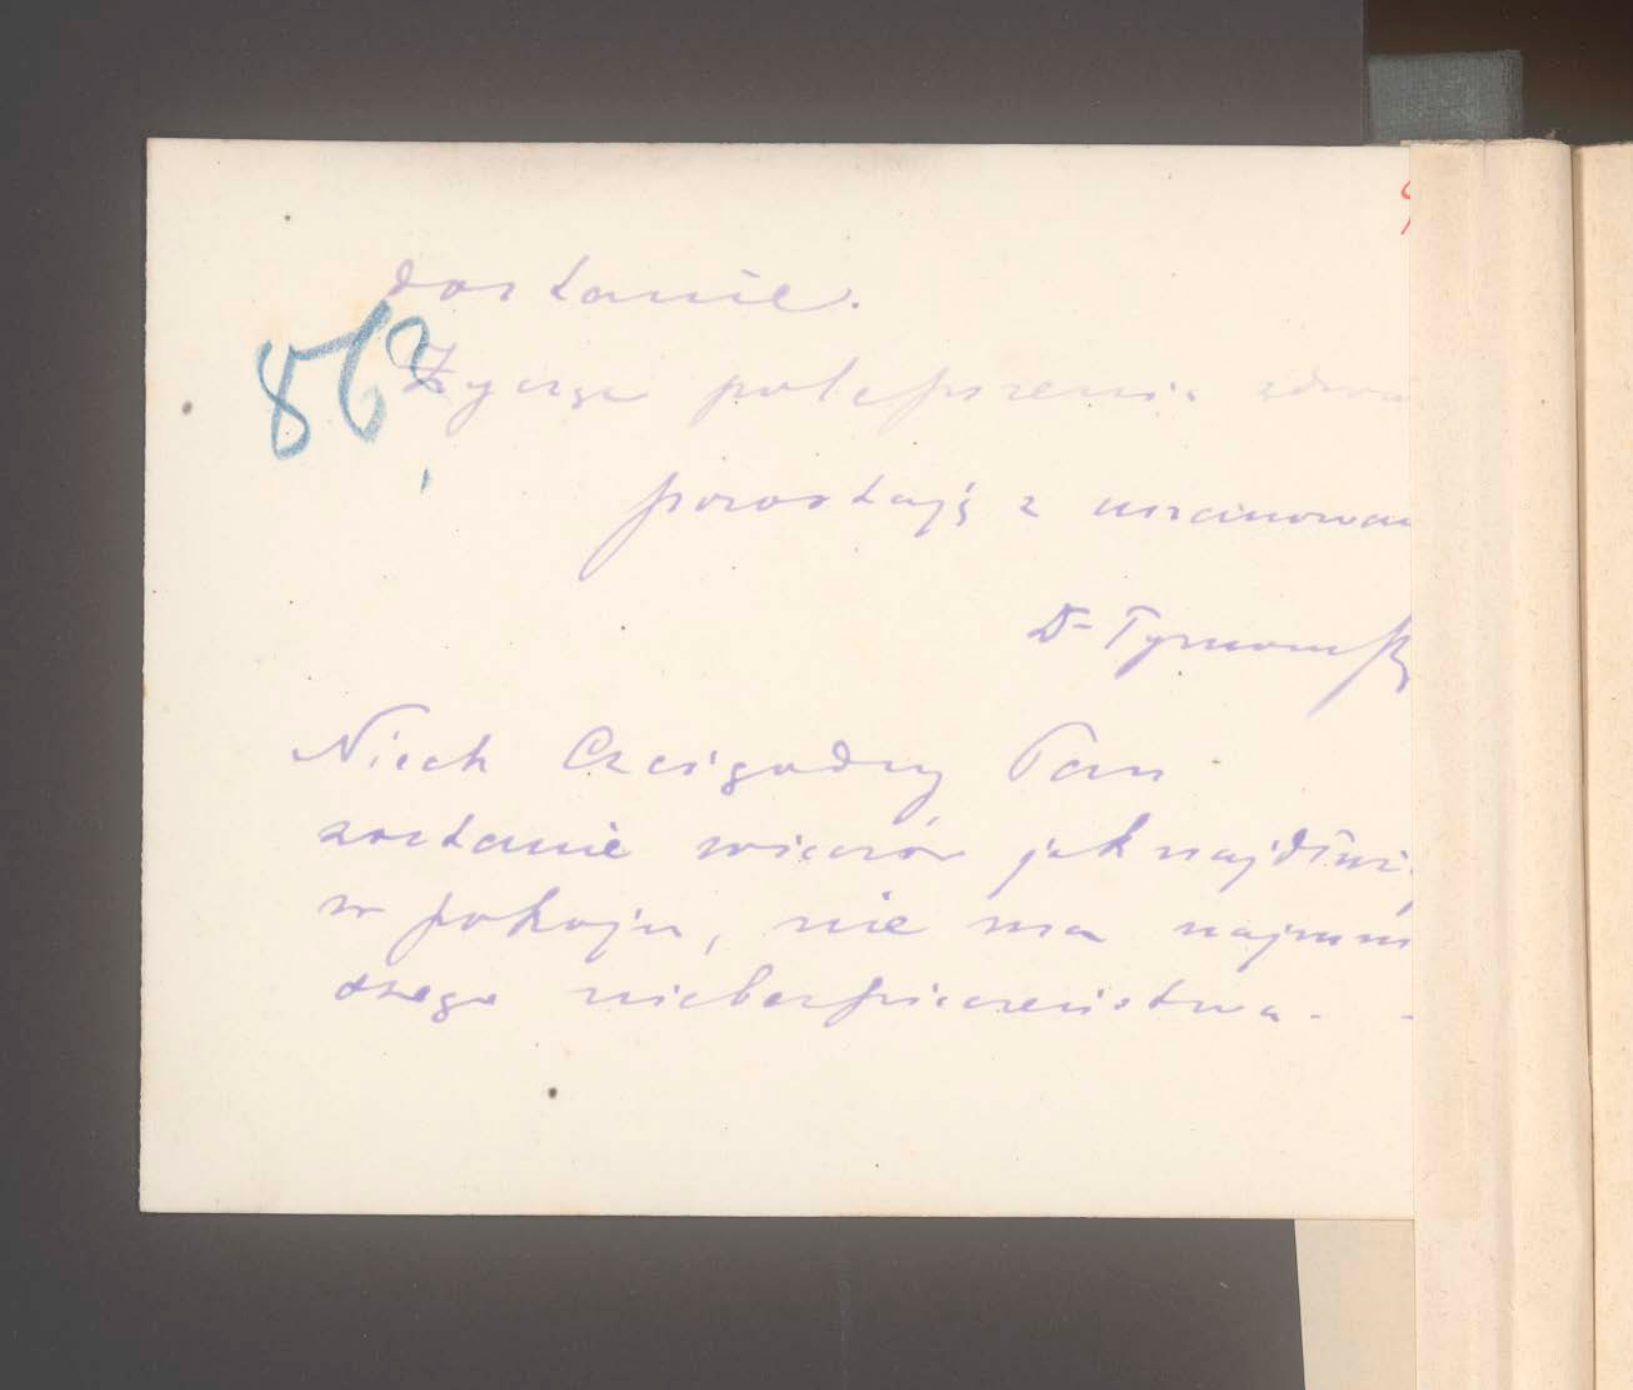 dostanie.
867
Życzę polepszenia zdro
pozostaję z uszanowan
Dr Tymowsk
Niech Czcigodny Pan
zostanie wieczór jak najdłuż
w pokoju, nie ma najmni
szego niebezpieczeństwa. -